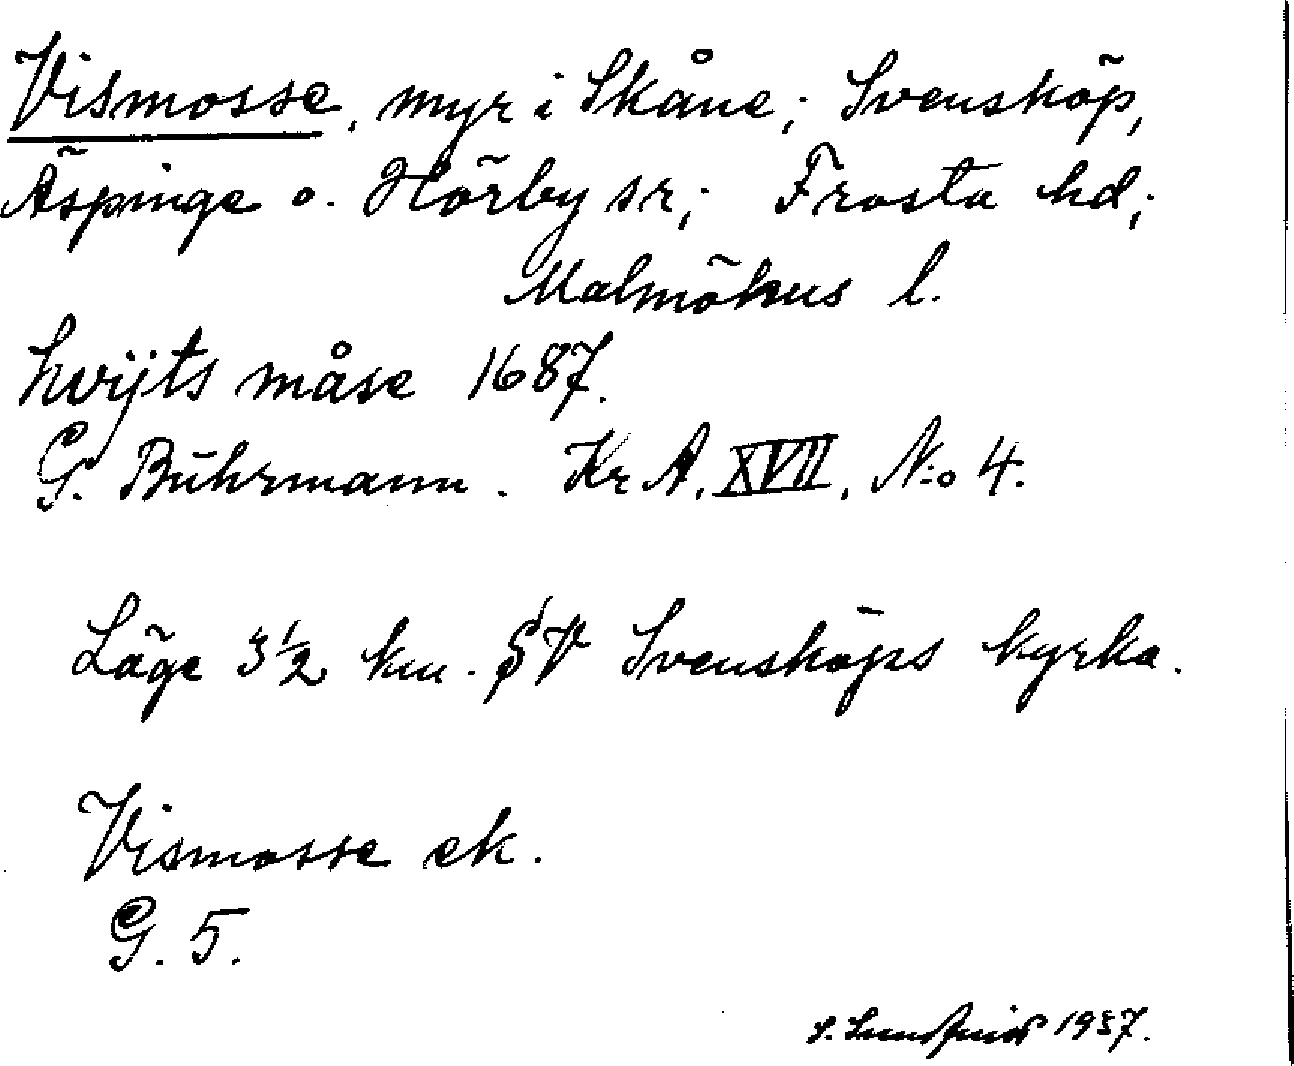 Vismosse, myr i Skåne; Svensköp,
Äspinge o. Hörby sr; Frosta hd;
Malmöhus l.
hvijts måse 1687.
G. Buhrmann. Kr A. XVII, N:o 4.
Läge 3 1/2 km. SV Svensköps kyrka.
Vismosse ek.
G. 5.
1937.